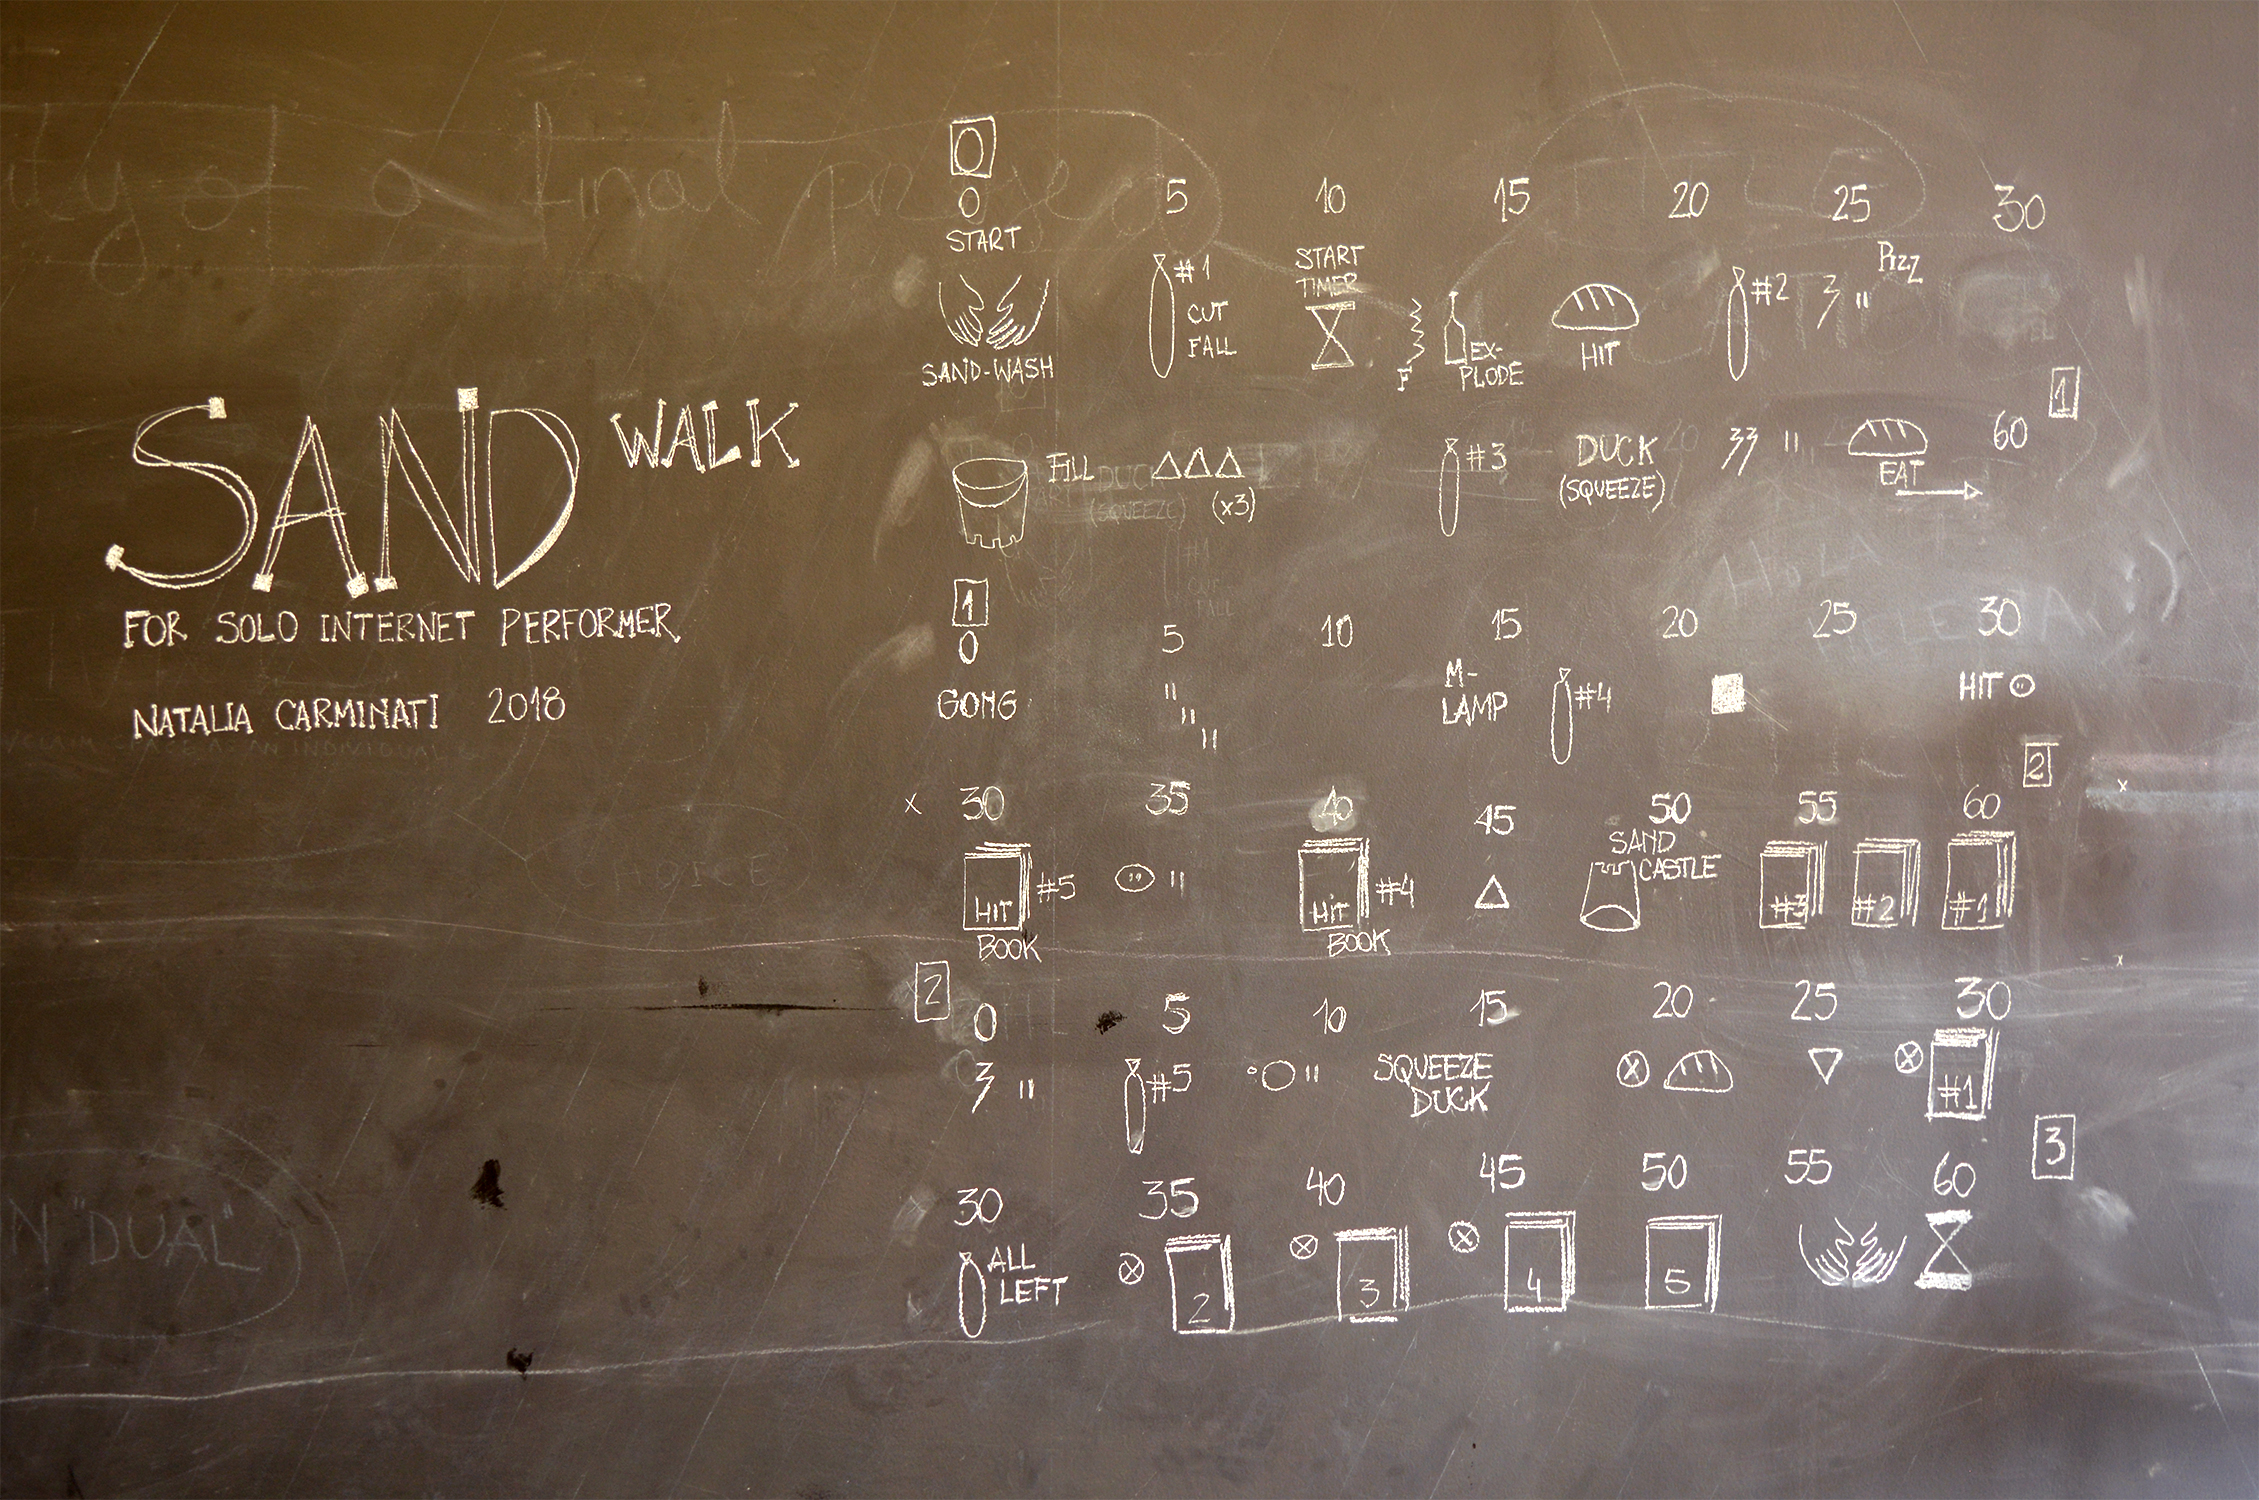 SAND WALK
FOR SOLO INTERNET PERFORMER
NATALIA CARMINATI 2018
0
0 5 10 15 20 25 30
START
SAND-WASH
#1
CUT
FALL
START
TIMER
F
EX-
PLODE
HIT
#2
Pizz
1
60
FILL
(x3)
#3
DUCK
(SQUEEZE)
EAT
1
0 5 10 15 20 25 30
GONG
M-
LAMP
#4
HIT
2
x 30 35 40 45 50 55 60
HIT
#5
BOOK
HIT
#4
BOOK
SAND
CASTLE
#3
#2
#1
2
0 5 10 15 20 25 30
#5
SQUEEZE
DUCK
#1
3
30 35 40 45 50 55 60
ALL
LEFT
2
3
4
5
final
CHOICE
N "DUAL"
HOLA